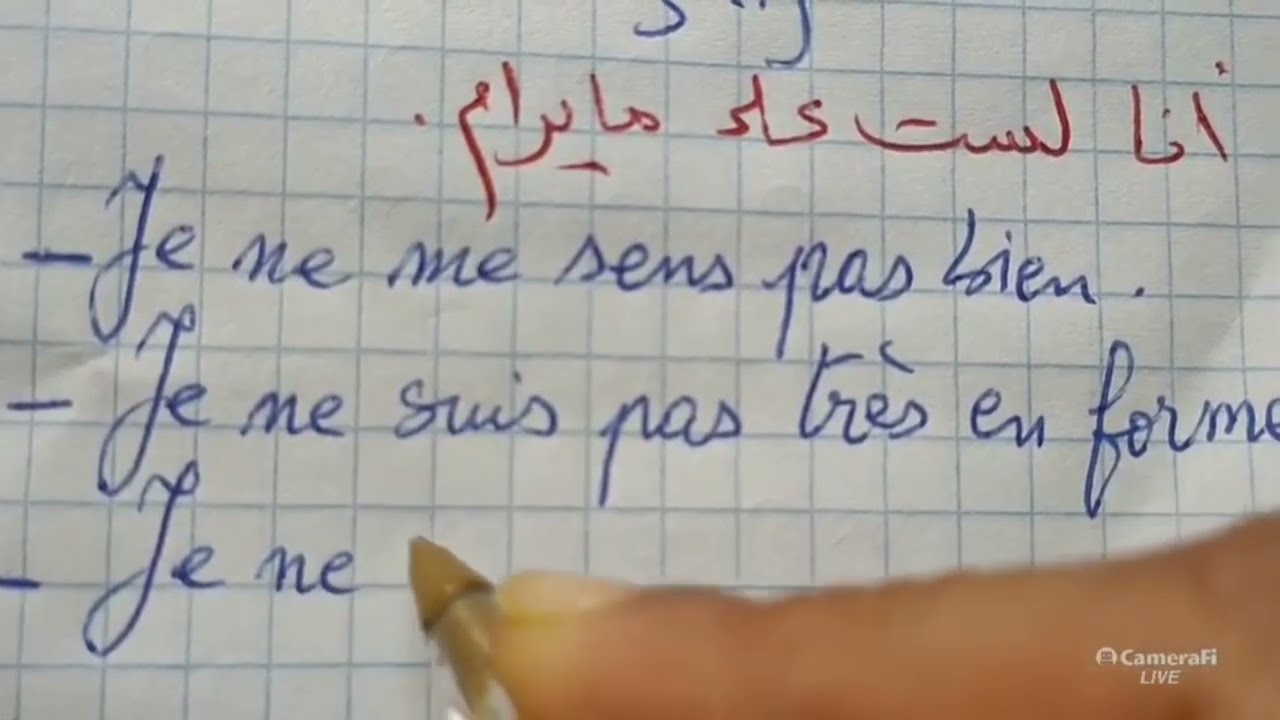 أنا لست على ما يرام.
- Je ne me sens pas bien.
- Je ne suis pas très en forme
- Je ne
CameraFi
LIVE